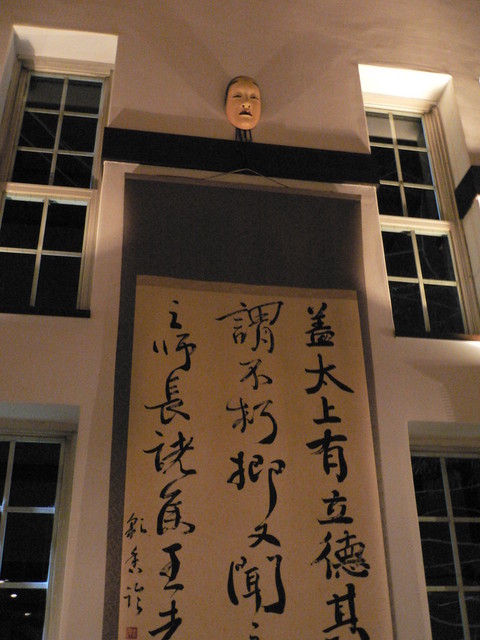 盖太上有立德其
謂不朽抑又聞之
之師長諸侯王者